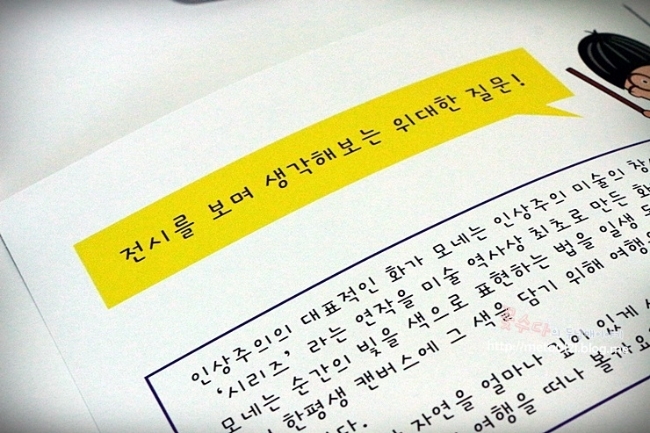 전시를 보며 생각해보는 위대한 질문!
인상주의의 대표적인 화가 모네는 인상주의 미술의 창
'시리즈' 라는 연작을 미술 역사상 최초로 만든 화
모네는 순간의 빛을 색으로 표현하는 법을 일생
한평생 캔버스에 그 색을 담기 위해 여행
자연을 얼마나 깊이 있게
여행을 떠나 볼까요
꽃수다